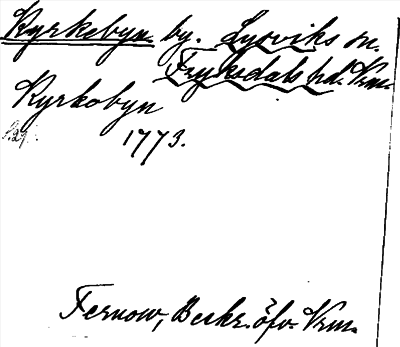 Kyrkebyn. by. Lysviks sn.
Fryksdals hd. Vrm.
Kyrkobyn
1773.
Fernow, Beskr. öfv. Vrm.